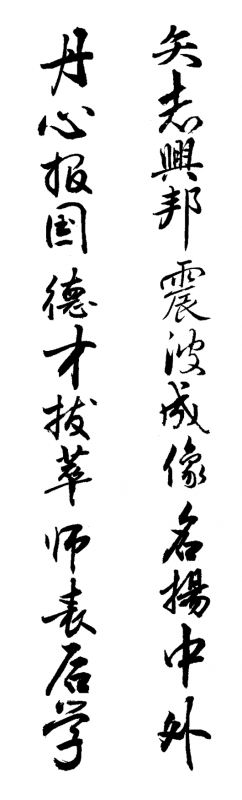 矢志興邦震波成像名揚中外
丹心报国德才拔萃师表后学